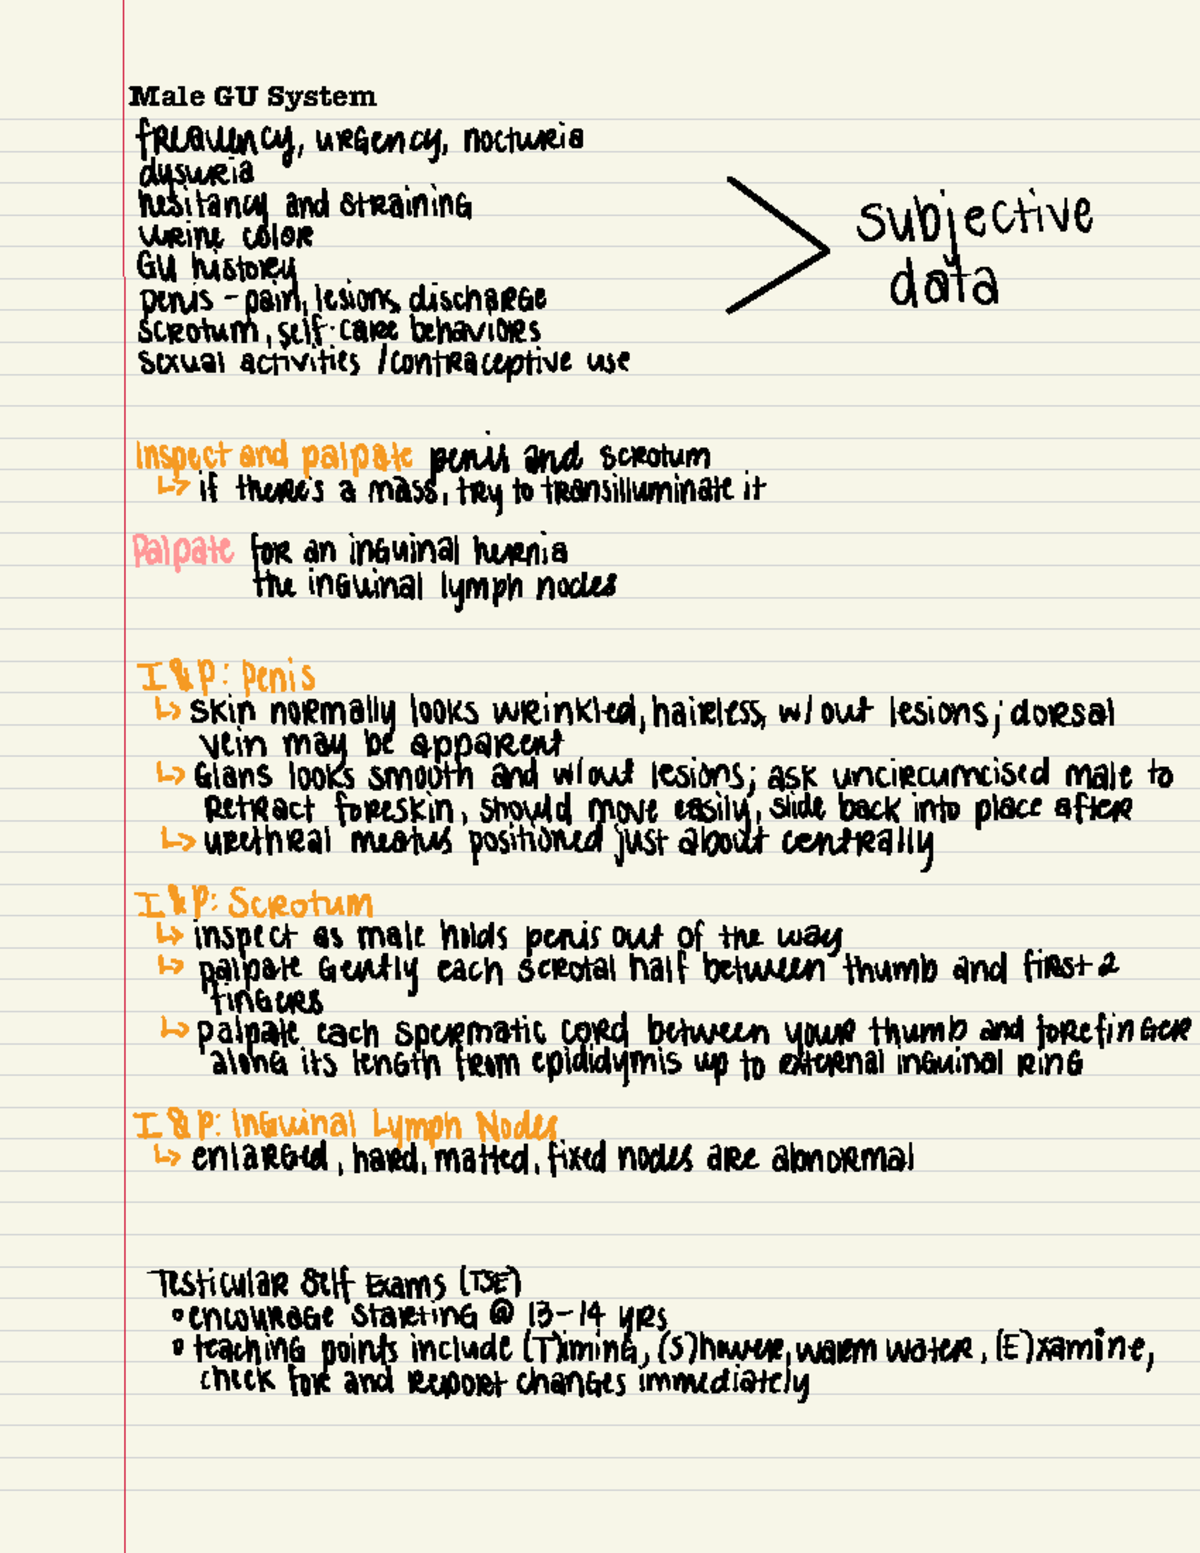 Male GU System
frequency, urgency, nocturia
dysuria
hesitancy and straining
urine color
GU history
penis - pain, lesions, discharge
scrotum, self-care behaviors
sexual activities / contraceptive use
subjective
data
Inspect and palpate penis and scrotum
↳ if there's a mass, try to transilluminate it
Palpate for an inguinal hernia
the inguinal lymph nodes
I & P: Penis
↳ skin normally looks wrinkled, hairless, w/out lesions; dorsal
vein may be apparent
↳ Glans looks smooth and w/out lesions; ask uncircumcised male to
retract foreskin, should move easily, slide back into place after
↳ urethral meatus positioned just about centrally
I & P: Scrotum
↳ inspect as male holds penis out of the way
↳ palpate gently each scrotal half between thumb and first 2
fingers
↳ palpate each spermatic cord between your thumb and forefinger
along its length from epididymis up to external inguinal ring
I & P: Inguinal Lymph Nodes
↳ enlarged, hard, matted, fixed nodes are abnormal
Testicular Self Exams (TSE)
• encourage starting @ 13-14 yrs
• teaching points include (T)iming, (S)hower, warm water, (E)xamine,
check for and report changes immediately